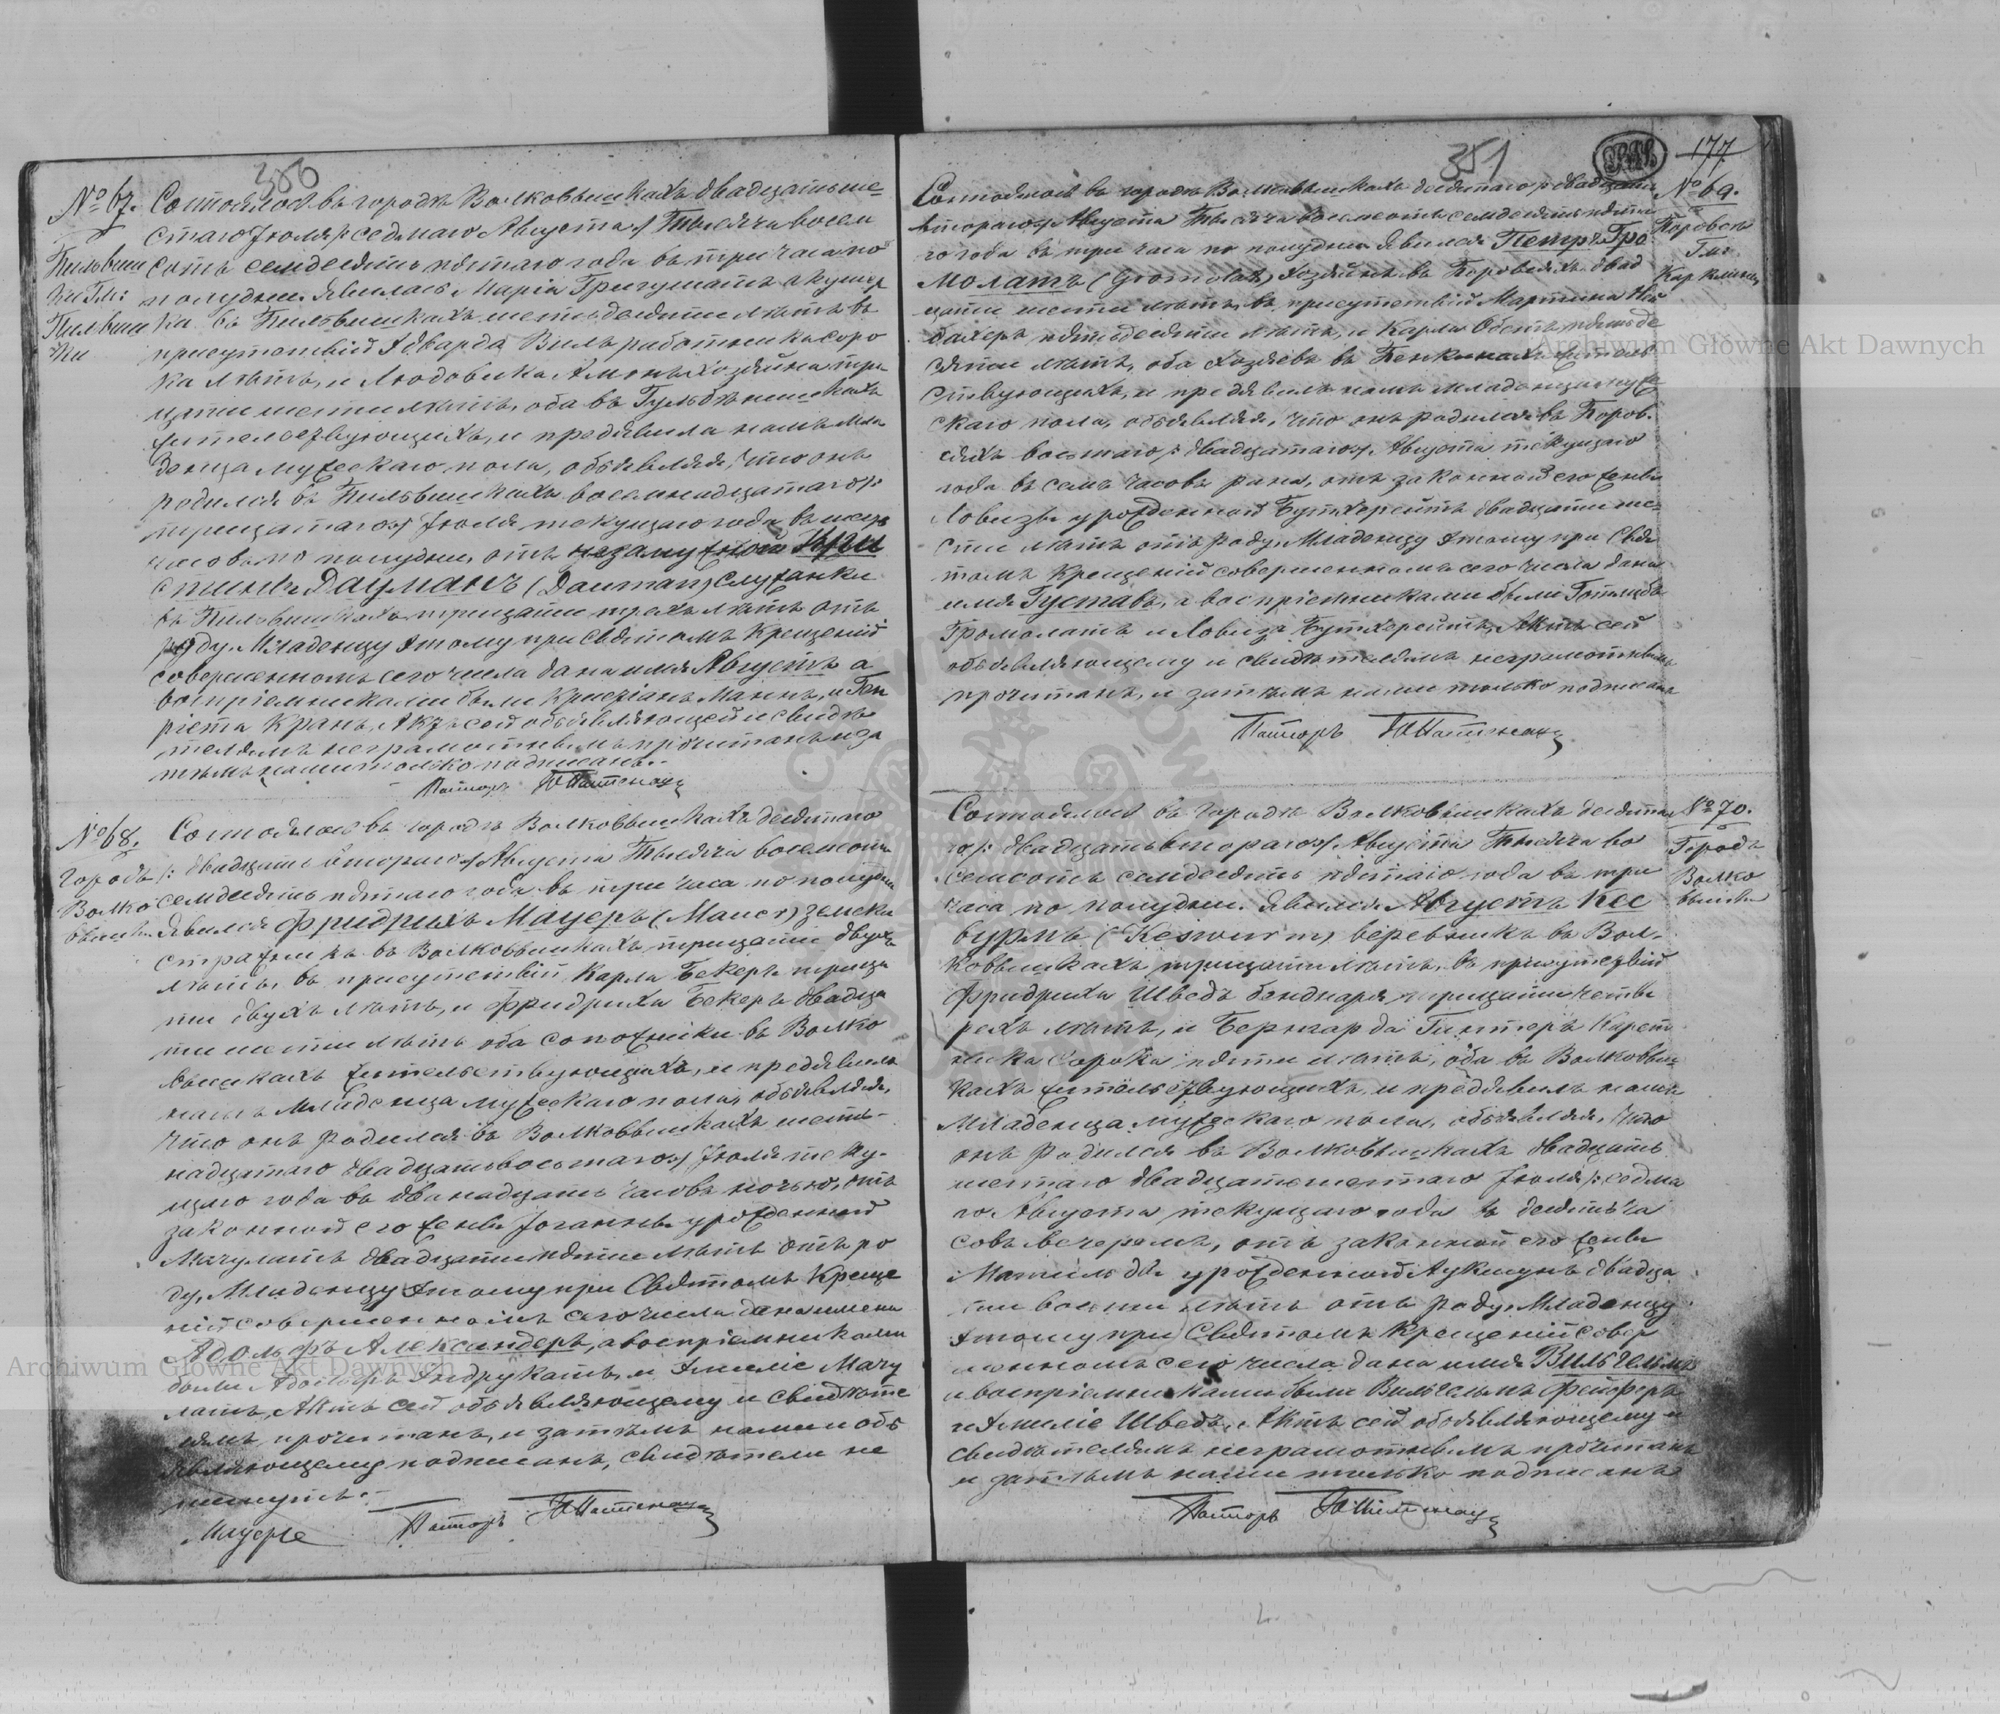 350
№ 67.
Пильвиш
ки Гм:
Пильвиш
ки
Состоялось въ городѣ Волковышкахъ двадцать ше-
стаго Іюля /: седьмаго Августа :/ Тысяча восем
сотъ семдесять пятаго года въ три часа по
полудни. Явилась Марія Григушатъ акушер
ка въ Пильвишкахъ шестьдесяти лѣтъ въ
присутствіи Эдварда Виль работника соро
ка лѣтъ, и Людовика хозяина три
цати шести лѣтъ, оба въ
жительствующихъ, и предъявила намъ мла
денца мужескаго пола, объявляя, что онъ
родился въ Пильвишкахъ восемнадцатаго /:
трицатаго :/ Іюля текущаго года въ
часовъ по полудни, отъ незамужной Кри
стины Дауманъ (Dauman) служанки
въ Пильвишкахъ трицати трехъ лѣтъ отъ
роду. Младенцу этому при Святомъ Крещеніи
совершенномъ сего числа дано имя Августъ а
воспріемниками были Христіанъ Маннъ, и Ген
ріета Кранъ. Актъ сей объявляющей и свидѣ
телямъ неграмотнымъ прочитанъ и за
тѣмъ нами только подписанъ.-
Пасторъ
№ 68.
Городъ
Волко
вышки
Состоялось въ городѣ Волковышкахъ десятаго
/: двадцать втораго :/ Августа Тысяча восемсотъ
семдесять пятаго года въ три часа по полудни
Явился Фридрихъ Мауеръ (Mauer) земски
стражникъ въ Волковышкахъ трицати двухъ
лѣтъ, въ присутствіи Карла Бекеръ трица
ти двухъ лѣтъ, и Фридриха Бекеръ двадца
ти шести лѣтъ оба сапожники въ Волко
вышкахъ жительствующихъ, и предъявилъ
намъ младенца мужескаго пола, объявляя,
что онъ родился въ Волковышкахъ шест-
надцатаго двадцать восьмаго :/ Іюля теку-
щаго года въ двенадцать часовъ ночью, отъ
законной его жены Іоганны урожденной
Мачулатъ двадцати пяти лѣтъ отъ ро
ду. Младенцу этому при Святомъ Креще
ніи совершенномъ сего числа дано имена
Адольфъ Александеръ, а воспріемниками
были Адольфъ Андрукатъ, и Эмиліе Мачу
латъ. Актъ сей объявляющему и свидѣте
лямъ прочитанъ, и затѣмъ нами и объ
являющему подписанъ, свидѣтели не
пишутъ.-
Мауеръ Пасторъ
351
177
№ 69.
Поровсь
Гм:
Состоялось въ городѣ Волковышкахъ десятаго /: двадцать
втораго :/ Августа Тысяча восемсотъ семдесять пята
го года въ три часа по полудни. Явился Петръ Гро
молатъ (Gromolat) хозяинъ въ Поровсяхъ двад
цати шести лѣтъ, въ присутствіи Мартина Ней
бахеръ пятьдесяти лѣтъ, и Карла пятьде
сяти лѣтъ, оба хозяевъ въ житель
ствующихъ, и предъявилъ намъ младенца муже
скаго пола, объявляя, что онъ родился въ Поров-
сяхъ восьмаго /: двадцатаго :/ Августа текущаго
года въ семь часовъ рана, отъ законной его жены
Ловизы урожденной Бутхерейтъ двадцати ше-
сти лѣтъ отъ роду. Младенцу этому при Свя
томъ Крещеніи совершенномъ сего числа дано
имя Густавъ, а воспріемниками были Готлибъ
Громолатъ и Ловиза Бутхерейтъ. Актъ сей
объявляющему и свидѣтелямъ неграмотнымъ
прочитанъ, и затѣмъ нами только подписанъ
Пасторъ
№ 70.
Городъ
Волко
вышки
Состоялось въ городѣ Волковышкахъ десята
го /: двадцать втораго :/ Августа Тысяча во
семсотъ семдесять пятаго года въ три
часа по полудни. Явился Августъ Кес
вурмъ (Keswurm) веревникъ въ Вол-
ковышкахъ трицати лѣтъ, въ присутствіи
Фридриха Шведъ бондаря трицати четы
рехъ лѣтъ, и Бернгарда Гинтеръ карет
ника сорока пяти лѣтъ, оба въ Волковыш
кахъ жительствующихъ, и предъявилъ намъ
Младенца мужескаго пола, объявляя, что
онъ родился въ Волковышкахъ двадцать
шестаго двадцать шестаго Іюля /: седма
го Августа текущаго года въ десять ча
совъ вечеромъ, отъ законной его жены
Матильды урожденной двадца
ти восьми лѣтъ отъ роду. Младенцу
этому при Святомъ Крещеніи совер
шенномъ сего числа дано имя Вильгельмъ
а воспріемниками были Вильгельмъ Фейферъ
и Эмиліе Шведъ. Актъ сей объявляющему и
свидѣтелямъ неграмотнымъ прочитанъ
и затѣмъ нами только подписанъ
Пасторъ
Archiwum Główne Akt Dawnych
Archiwum Główne Akt Dawnych